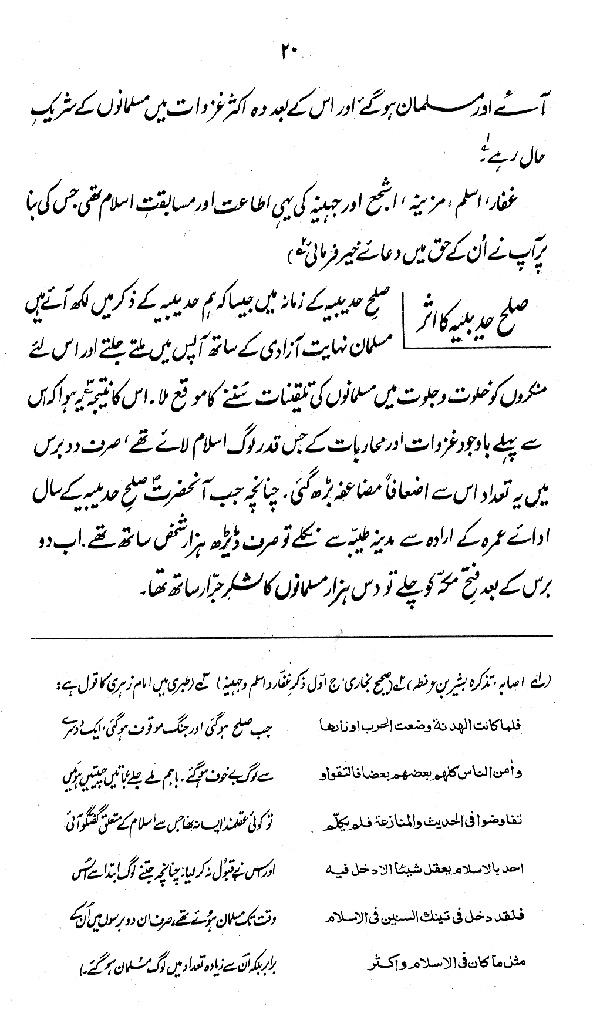 ۲۰
آئے اور مسلمان ہو گئے اور اس کے بعد وہ اکثر غزوات میں مسلمانوں کے شریکِ
حال رہے لہ
غفار، اسلم، مزینہ، اشجع اور جہینہ کی یہی اطاعت اور مسابقتِ اسلام تھی جس کی بنا
پر آپ نے اُن کے حق میں دعائے خیر فرمائی۔ ۲ه)
صلح حدیبیہ کا اثر
صلح حدیبیہ کے زمانہ میں جیسا کہ ہم حدیبیہ کے ذکر میں لکھ آئے ہیں
مسلمان نہایت آزادی کے ساتھ آپس میں ملتے جلتے اور اس لئے
منکروں کو خلوت و جلوت میں مسلمانوں کی تلقینات سننے کا موقع ملا۔ اس کا نتیجہ یہ ہوا کہ اس
سے پہلے باوجود غزوات اور محاربات کے جس قدر لوگ اسلام لائے تھے، صرف دو برس
میں یہ تعداد اس سے اضعافاً مضاعفہ بڑھ گئی، چنانچہ جب آنحضرتؐ صلح حدیبیہ کے سال
ادائے عمرہ کے ارادہ سے مدینہ طیبہ سے نکلے تو صرف ڈیڑھ ہزار شخص ساتھ تھے۔ اب دو
برس کے بعد فتحِ مکہ کو چلے تو دس ہزار مسلمانوں کا لشکرِ جرّار ساتھ تھا۔
(لہ اصابہ، تذکرہ بشیر بن عرفطہ) ۲ه (صحیح بخاری ج اوّل ذکر غفار و اسلم و جہینہ) ۳ه (طبری میں امام زہری کا قول ہے:
فلما كانت الهدنة وضعت الحرب اوزارها
جب صلح ہو گئی اور جنگ موقوف ہو گئی، ایک دوسرے
وأمن الناس كلهم بعضهم بعضا فالتقوا و
سے لوگ بے خوف ہو گئے۔ باہم ملے جلے باتیں چیتیں ہوئیں
تفاوضوا فى الحديث والمنازعة فلم يكلّم
تو کوئی عقلمند ایسا نہ تھا جس سے اسلام کے متعلق گفتگو آئی
احد بالاسلام يعقل شيئا الا دخل فيه
اور اس نے قبول نہ کر لیا: چنانچہ جتنے لوگ ابتدا سے اُس
فلقد دخل فى تينك السنين فى الاسلام
وقت تک مسلمان ہوئے تھے، صرف ان دو برسوں میں اُن کے
مثل ما كان فى الاسلام و اكثر
برابر بلکہ اُن سے زیادہ تعداد میں لوگ مسلمان ہو گئے۔)